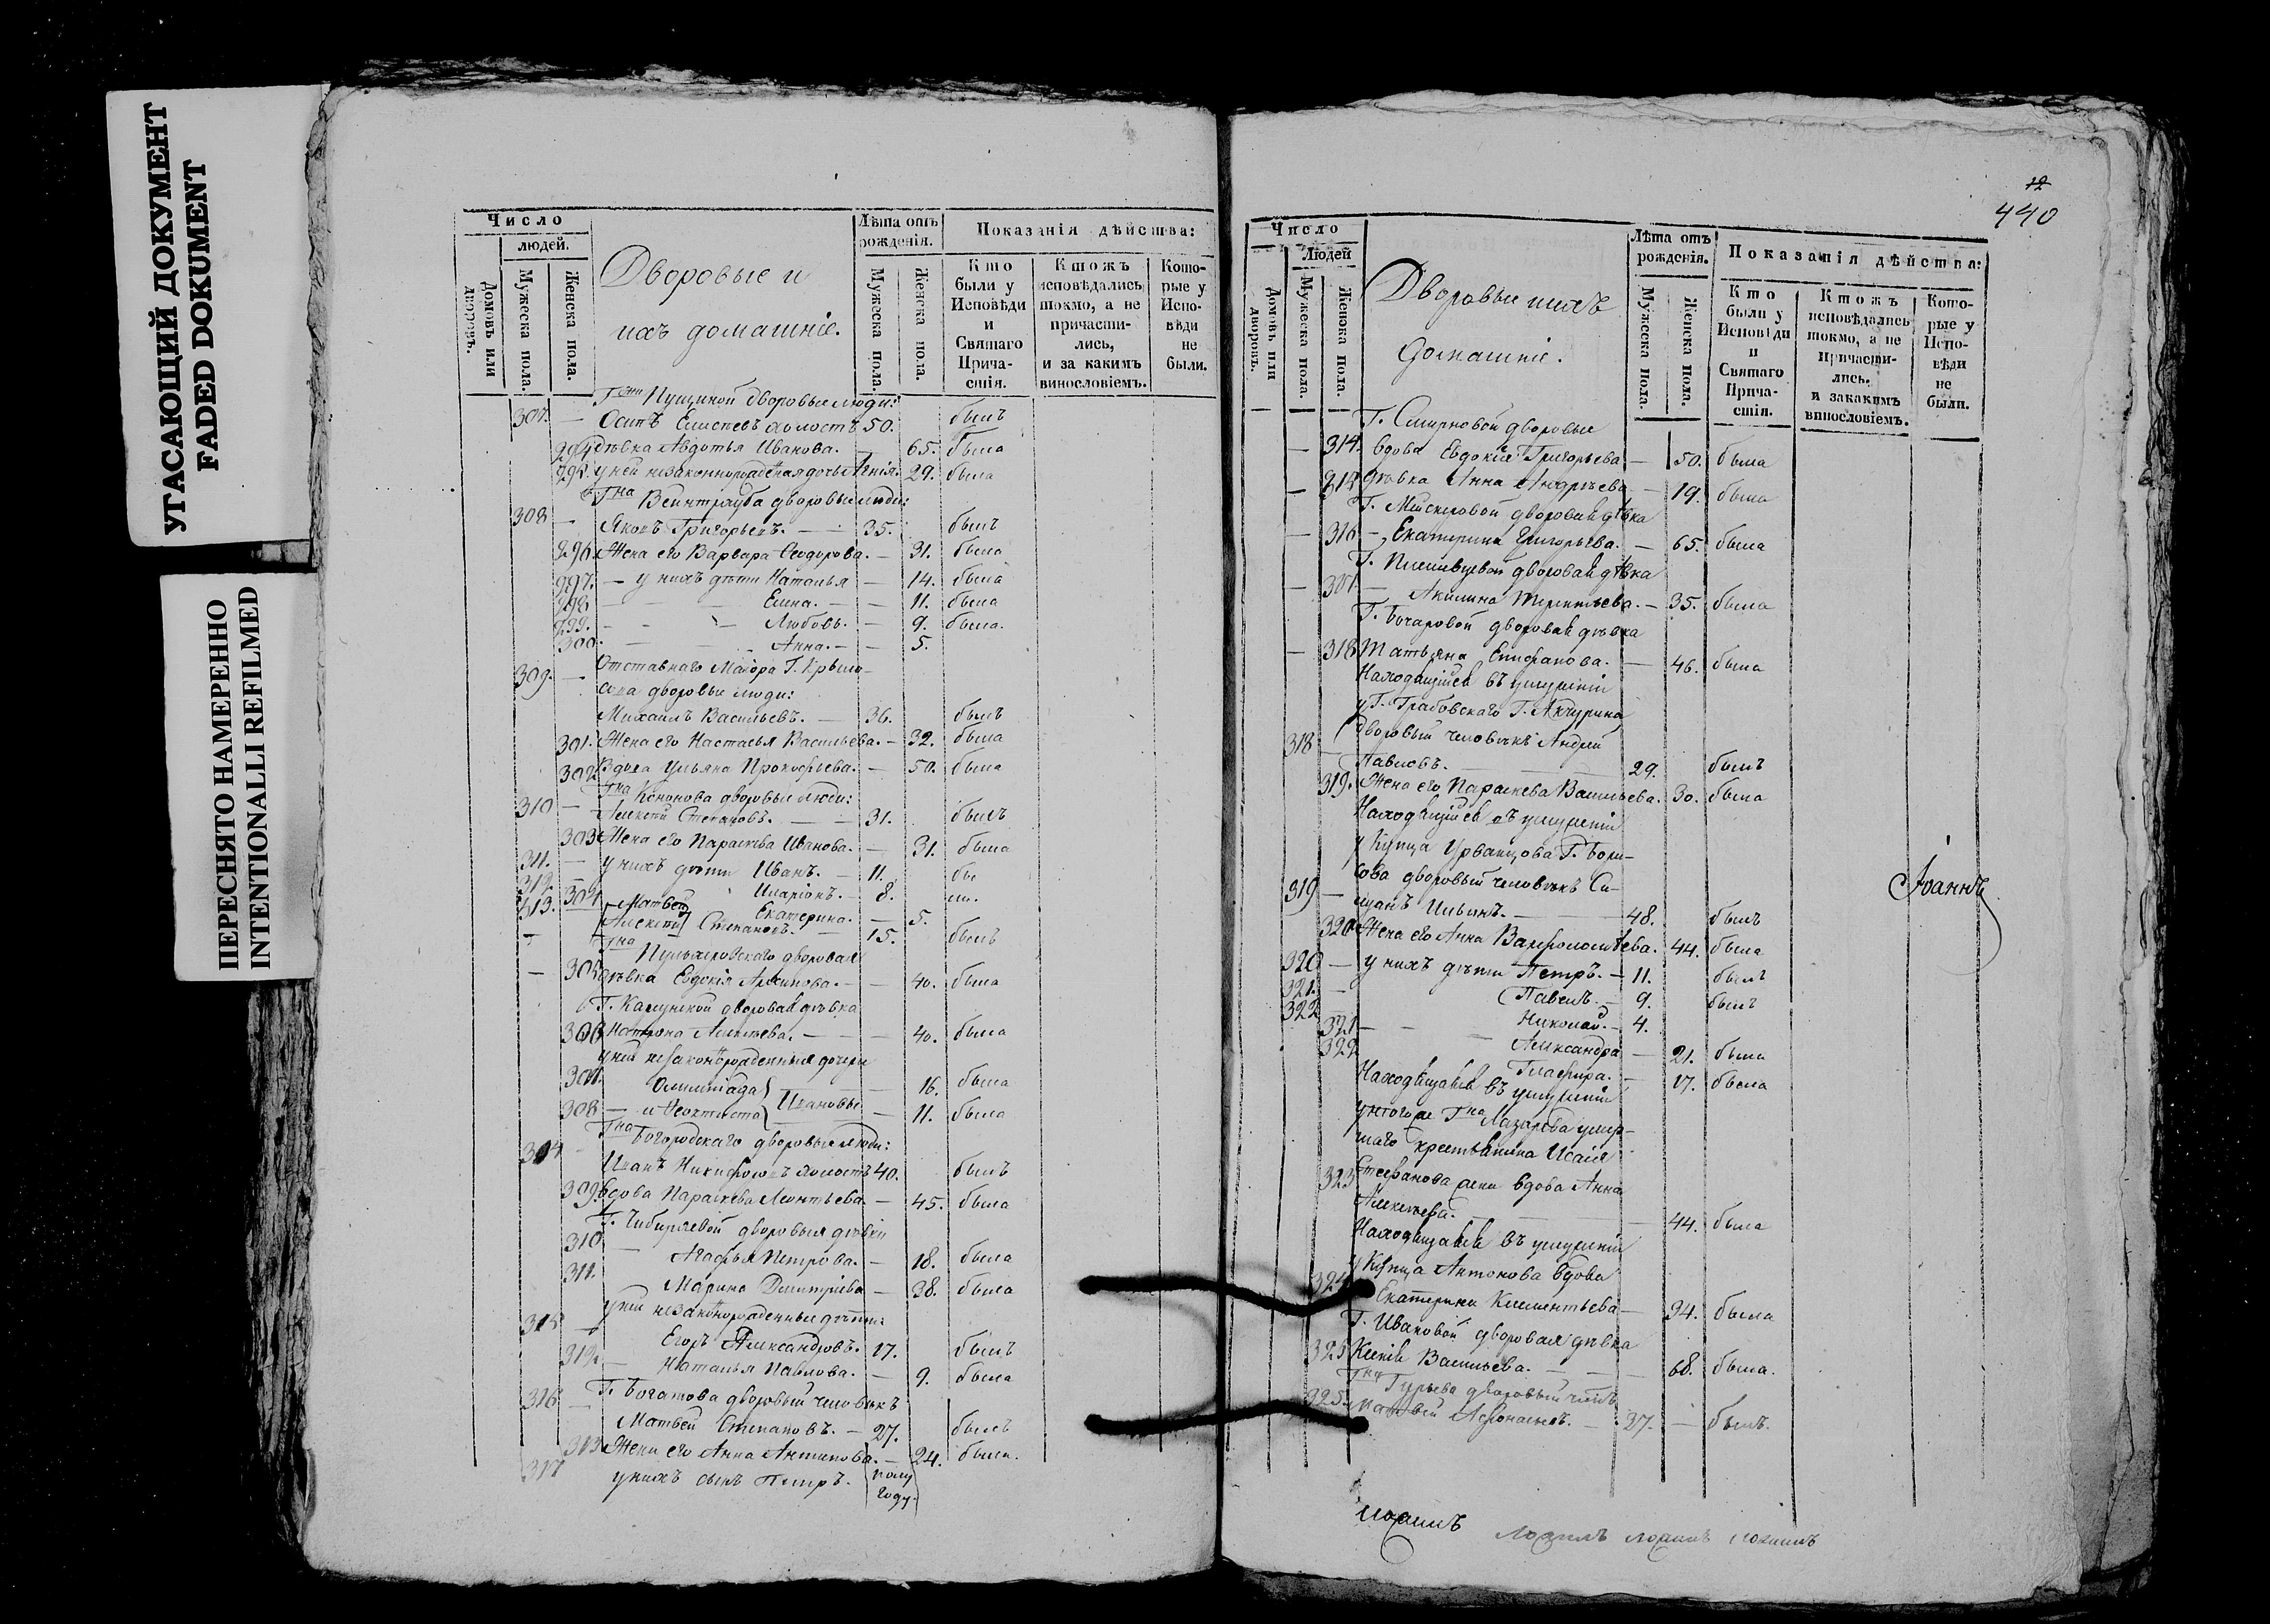 УГАСАЮЩИЙ ДОКУМЕНТ
FADED DOKUMENT
ПЕРЕСНЯТО НАМЕРЕННО
INTENTIONALLI REFILMED
Число
людей.
Домовъ или дворовъ.
Мужеска пола.
Женска пола.
Дворовые и
ихъ домашніе.
Лѣта отъ рожденія.
Мужеска пола.
Женска пола.
Показанія дѣйства:
Кто были у Исповѣди и Святаго Причастія.
Ктожъ исповѣдались токмо, а не причастились, и за какимъ винословіемъ.
Которые у Исповѣди не были.
Пущиной дворовые люди:
307. — Осипъ холостъ 50. былъ
294 дѣвка Авдотья Иванова. — 65. была
295. у ней незаконнорожденная дочь 29. была
Гна Вейнтрауба дворовые люди:
308 — Яковъ Григорьевъ. — 35. былъ
296. Жена его Варвара Ѳеодорова. — 31. была
297. — у нихъ дѣти Наталья — 14. была
298 — Елена. — 11. была
299. — Любовь. — 9. была.
300. — Анна. — 5.
309. — Отставнаго Маіора Г. Крыло-
сова дворовые люди:
Михаилъ Васильевъ. — 36. былъ
301. Жена его Настасья Васильева. — 32. была
302 Вдова Ульяна Прокофьева. — 50. была
Гна Кононова дворовые люди:
310 — Алексѣй Степановъ. — 31. былъ
303 Жена его Параскева Иванова. — 31. была
311. — у нихъ дѣти Иванъ. — 11. бы
312 — Иларіонъ. — 8. ли.
313. 304 Екатерина. — 5.
Матвей
Алексѣй Степановъ. — 15. былъ
Гна дворовая
— 305 дѣвка Евдокія — 40. была
Г. дворовая дѣвка
306 Матрона — 40. была
у ней незаконнорожденныя дочери
307. Олимпіада — 16. была
308 — и Ѳеоктиста Ивановы — 11. была
Гна Богородскаго дворовые люди:
314 Иванъ Никифоровъ холостъ 40. былъ
309 вдова Параскева Леонтьева — 45. была
Г. дворовыя дѣвки
310 — Агафья Петрова. — 18. была
311. Марина Дмитріева — 38. была
у ней незаконнорожденные дѣти:
315 — Егоръ Александровъ. 17. былъ
312. — Наталья Павлова. — 9. была
316 — Г. Богатова дворовый человѣкъ
Матвей Степановъ. — 27. былъ
313 Жена его Анна Антипова. — 24. была.
317 у нихъ сынъ Петръ. полу
году.
12
440
Число
Людей
Домовъ или дворовъ.
Мужеска пола
Женска пола.
Дворовые ихъ
домашніе.
Лѣта отъ рожденія.
Мужеска пола.
Женска пола.
Показанія дѣйства:
Кто были у Исповѣди и Святаго Причастія.
Ктожъ исповѣдались токмо, а не причастились. и закакимъ винословіемъ.
Которые у Исповѣди не были.
Г. Смирновой дворовые
— 314. вдова Евдокія Григорьева — 50. была
— 315 дѣвка Анна Андреева — 19. была
Г. дворовая дѣвка
— 316 — Екатерина Григорьева. — 65. была
Г. дворовая дѣвка
— 317 Акилина Терентьева. — 35. была
Г. Бочаровой дворовая дѣвка
— 318 Татьяна Епифанова. — 46. была
Находящійся въ услуженіи
у Г. Грабовскаго Г. Акчурина
318 дворовый человѣкъ Андрей
Павловъ. — 29. былъ
319. Жена его Параскева Васильева. 30. была
Находящійся въ услуженіи
у Купца Урванцова Г. Бори-
сова дворовый человѣкъ Си-
319 — Ильинъ. — 48. былъ
320 Жена его Анна Варфоломеѣва. 44. была
320 — у нихъ дѣти Петръ. — 11. былъ
321. — Павелъ. — 9. былъ
322 Николай. — 4.
321 — Александра — 21. была
322 — Глафира. — 17. была
Находящаяся въ услуженіи
у тогоже Гна Лазарева умер-
шаго крестьянина Исаія
323 Стефанова жена вдова Анна
Алексѣева. — 44. была
Находящаяся въ услуженіи
у Купца Антонова вдова
324 Екатерина Климентьева — 34. была
Г. Ивановой дворовая дѣвка
325 Ксенія Васильева. — 68. была.
Гна Гурьева дворовый челов.
323. Матвей — 37. — былъ.
Іоаннъ